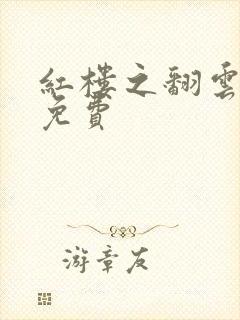 紅樓之翻雲
免費
游章友